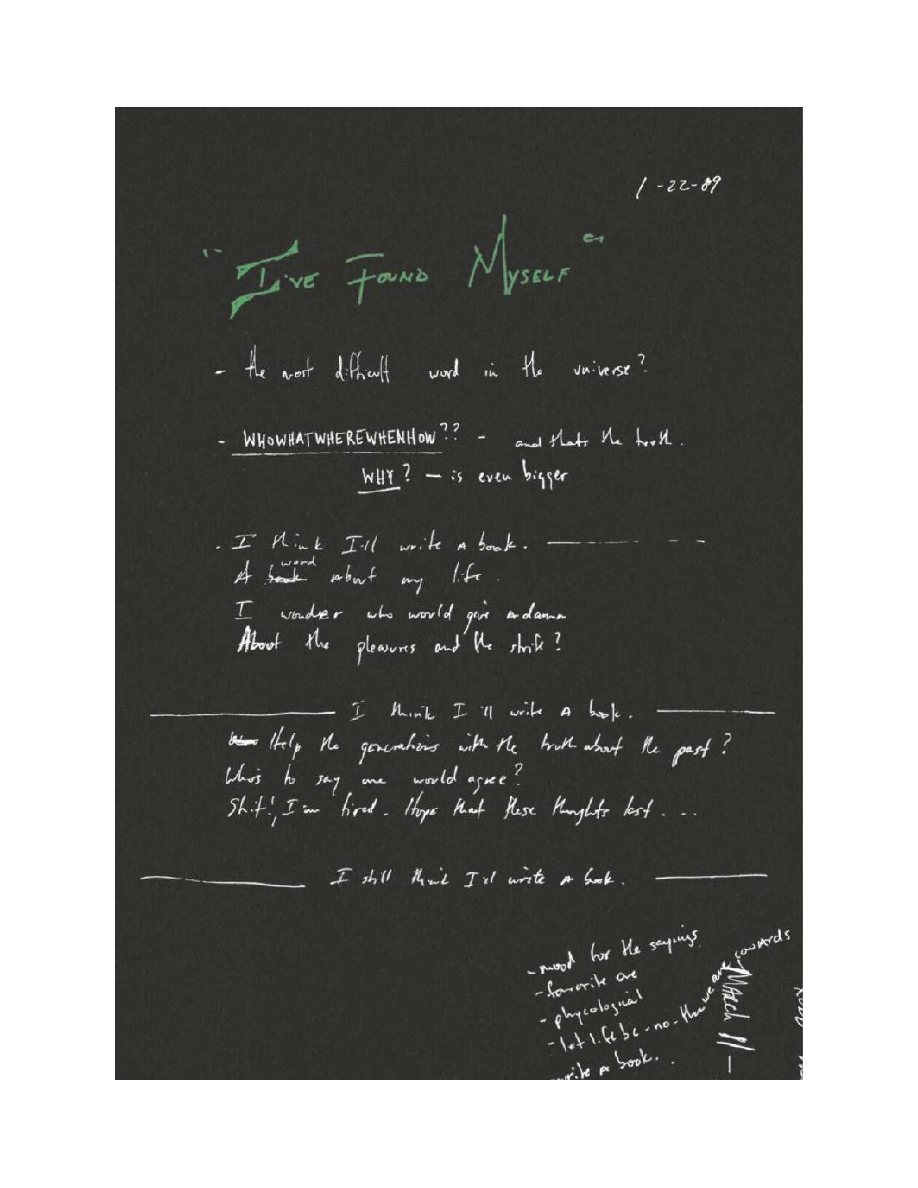 1-22-89
"I've Found Myself"
- the most difficult word in the universe?
- WHOWHATWHEREWHENHOW?? - and thats the truth.
WHY? - is even bigger
- I think I'll write a book.
A book word about my life.
I wonder who would give a damn
About the pleasures and the strife?
I think I'll write a book.
Help the generations with the truth about the past?
Who's to say one would agree?
Shit!, I am tired. Hope that these thoughts last...
I still think I'll write a book.
- mood for the sayings
- favorite are
- phycological
- let life be - no - then we are cowards
write a book.
March 11 -